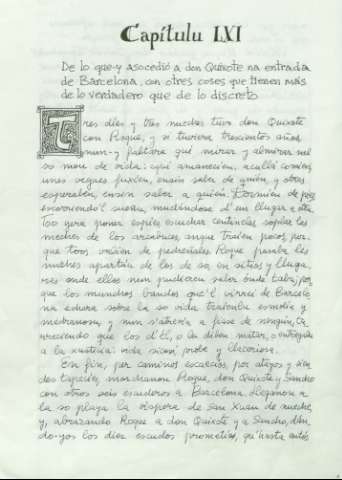 Capítulu LXI
De lo que-y asocedió a don Quixote na entrada
de Barcelona, con otres coses que tienen más
de lo verdadero que de lo discreto
Tres díes y tres nueches tuvo don Quixote
con Roque, y si tuviera trescientos años,
nun-y faltara qué mirar y almirar nel
so mou de vida: equí amanecíen, acullá comíen;
unes vegaes fuxíen, ensin saber de quién, y otres
esperaben, ensin saber a quién. Dormíen de pies,
encorriendo'l suenu, mudándose d'un llugar a otru.
Too yera poner espíes, escuchar centineles, soplar les
meches de los arcabuces, anque traíen pocos, por-
que toos usaben de pedreñales. Roque pasaba les
nueches apartáu de los de so, en sitios y lluga-
res onde ellos nun pudieren saber ónde taba, por-
que los munchos bandos que'l virréi de Barcelo-
na echara sobre la so vida traíenlu esmolíu y
medrosu, y nun s'atrevía a fiase de nengún,
que los d'él, o lu diben matar, o entregalu
a la xusticia: vida, sicasí, probe y
En fin, per caminos escaecíos, por atayos y sen-
des tapecíes, marcharon Roque, don Quixote y Sancho
con otros seis escuderos a Barcelona. Llegaron a
la so playa la víspora de San Xuan de nueche,
y, abrazando Roque a don Quixote y a Sancho,
do-yos los diez escudos prometíos, qu'hasta entós